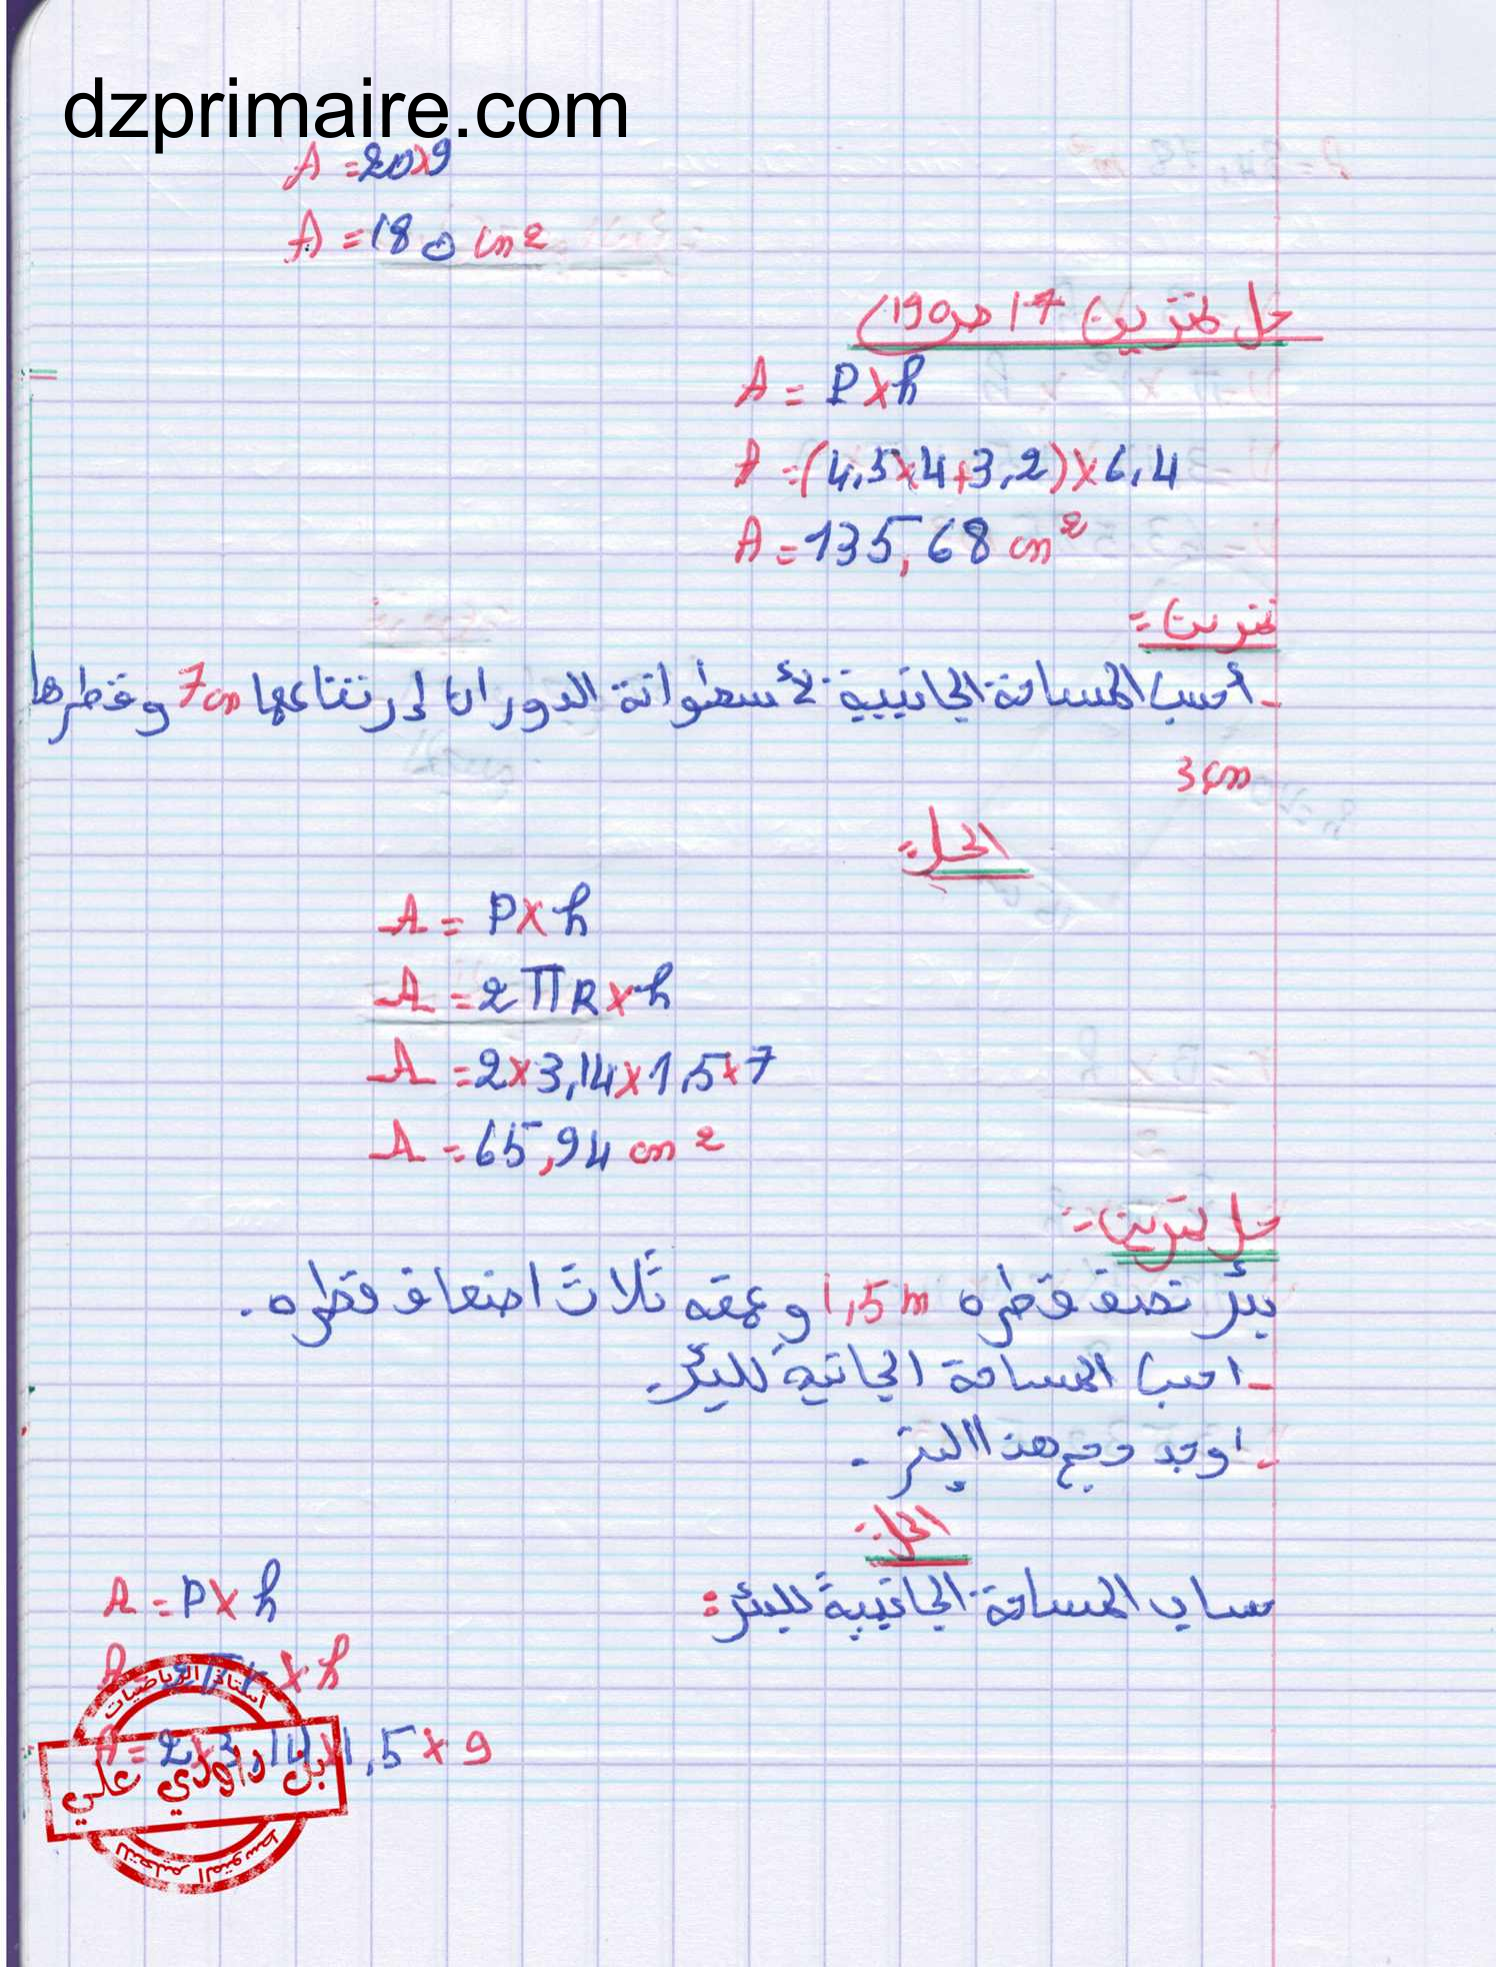 dzprimaire.com
A = 20×9
A = 180 cm²
حل تمرين 17 ص190)
A = P×h
A = (4,5×4+3,2)×6,4
A = 135,68 cm²
تمرين =
- أحسب المساحة الجانبية لأسطوانة الدوران إرتفاعها 7cm وقطرها
3cm
الحل =
A = P×h
A = 2πR×h
A = 2×3,14×1,5×7
A = 65,94 cm²
حل تمرين =
بئر نصف قطره 1,5m وعمقه ثلاث اضعاف قطره.
- احسب المساحة الجانبية للبئر.
- اوجد حجم هذا البئر.
الحل:
حساب المساحة الجانبية للبئر:
A = P×h
A = 2πr×h
A = 2×3,14×1,5×9
أستاذ الرياضيات
بن داودي علي
للتعليم المتوسط